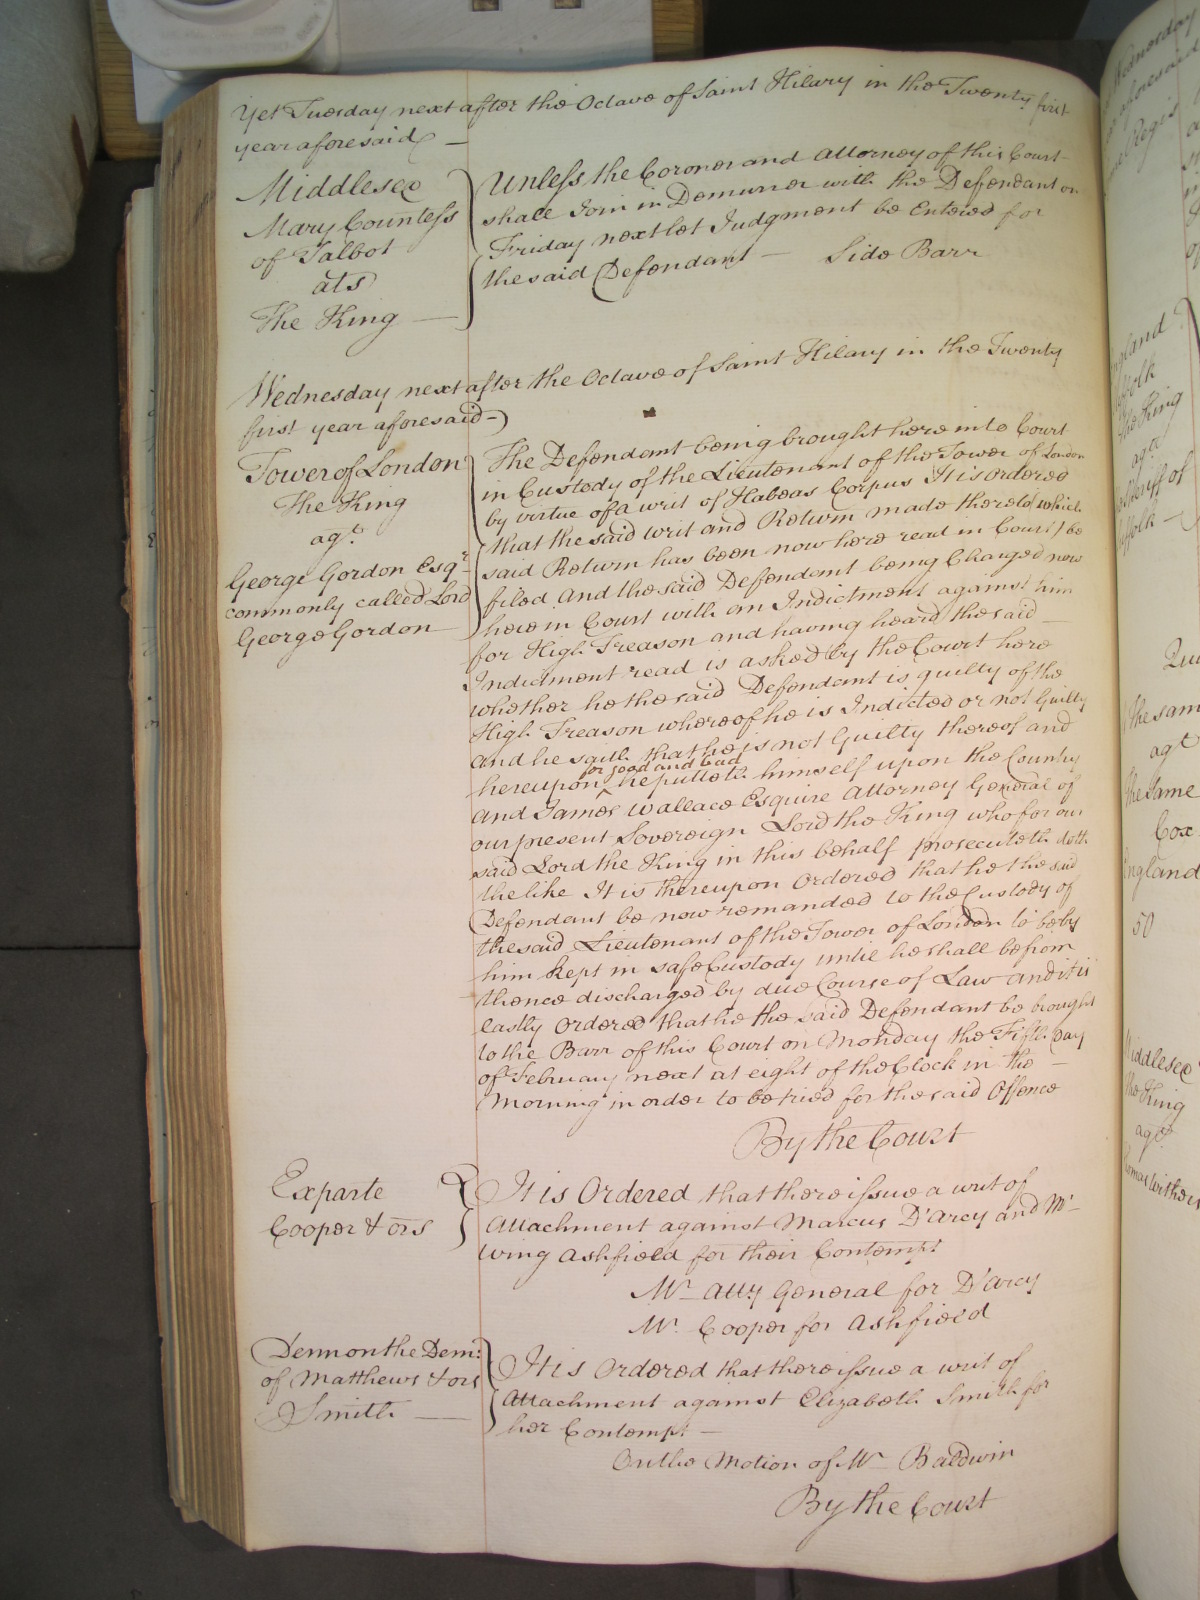 Yet Tuesday next after the Octave of Saint Hilary in the Twenty first
year aforesaid —
Middlesex
Mary Countess
of Talbot
ats
The King —
Unless the Coroner and Attorney of this Court
shall Join in Demurrer with the Defendant on
Friday next let Judgment be Entered for
the said Defendant — Side Barr
Wednesday next after the Octave of Saint Hilary in the Twenty
first year aforesaid —
Tower of London
The King
agt.
George Gordon Esqr.
commonly called Lord
George Gordon —
The Defendant being brought here into Court
in Custody of the Lieutenant of the Tower of London
by virtue of a writ of Habeas Corpus It is ordered
that the said writ and Return made thereto (which
said Return has been now here read in Court) be
filed And the said Defendant being Charged now
here in Court with an Indictment against him
for High Treason and having heard the said —
Indictment read is asked by the Court here
whether he the said Defendant is guilty of the
High Treason whereof he is Indicted or not Guilty
and he saith that he is not Guilty thereof and
hereupon ^for good and bad he putteth himself upon the Country
and James Wallace Esquire Attorney General of
our present Sovereign Lord the King who for our
said Lord the King in this behalf prosecuteth doth
the like It is thereupon Ordered that he the said
Defendant be now remanded to the Custody of
the said Lieutenant of the Tower of London to be by
him kept in safe Custody until he shall be from
thence discharged by due Course of Law and it is
lastly Ordered that he the said Defendant be brought
to the Barr of this Court on Monday the Fifth Day
of February next at eight of the Clock in the —
Morning in order to be tried for the said Offence
By the Court
Exparte
Cooper & ors
It is Ordered that there issue a writ of
Attachment against Marcus D'Arcy and Mr.
Wing Ashfield for their Contempt
Mr. Atty General for D'Arcy
Mr. Cooper for Ashfield
Denn on the Dem:
of Matthews & ors
Smith —
It is Ordered that there issue a writ of
Attachment against Elizabeth Smith for
her Contempt —
On the Motion of Mr. Baldwin
By the Court
Wednesday
aforesaid
Regis
England
Suffolk
The King
agt
Sheriff of
Suffolk —
The same
agt
The same
Cox
England
50
Middlesex
The King
agt